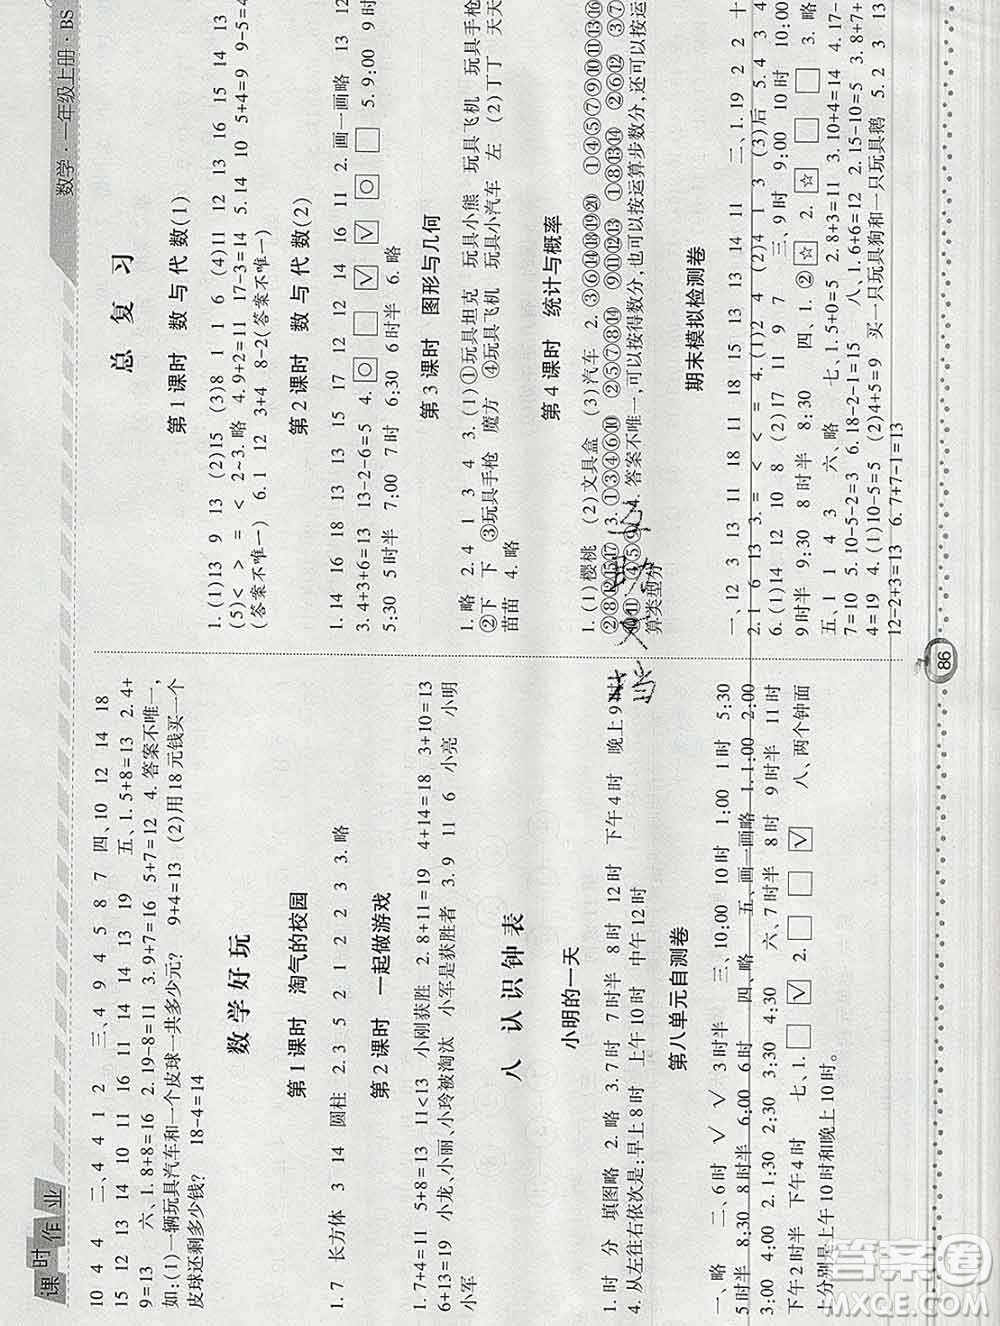 课时作业
10 4 4 二、4 4 1 2 三、4 9 4 5 8 7 四、10 12 14 18
15 12 13 14 10 11 16 11 14 13 19 五、1. 5+8=13 2. 4+
9=13 六、1. 8+8=16 2. 19-8=11 3. 9+7=16 5+7=12 4. 答案不唯一,
如:(1)一辆玩具汽车和一个皮球一共多少元? 9+4=13 (2)用18元钱买一个
皮球还剩多少钱? 18-4=14
数学好玩
第1课时 淘气的校园
1. 7 长方体 3 14 圆柱 2. 3 5 2 1 2 2 3 3. 略
第2课时 一起做游戏
1. 7+4=11 5+8=13 11<13 小刚获胜 2. 8+11=19 4+14=18 3+10=13
6+13=19 小龙、小丽、小玲被淘汰 小军是获胜者 3. 9 11 6 小亮 小明
小军
八 认识钟表
小明的一天
1. 时 分 填图略 2. 略 3. 7时 7时半 8时 12时 下午4时 晚上9时
4. 从左往右依次是:早上8时 上午10时 中午12时
第八单元自测卷
一、略 二、6时 √ √ 3时半 三、10:00 10时 1:00 1时 5:30
5时半 8:30 8时半 6:00 6时 四、略 五、画一画略 1. 1:00 2:00
3:00 4:00 2. 1:30 2:30 3:30 4:30 六、7时半 8时 9时半 11时
下午2时半 下午4时 七、1. □ √ 2. □ □ √ 八、两个钟面
十分别是上午10时和晚上10时。
数学·一年级上册·BS
总复习
第1课时 数与代数(1)
1. (1)13 9 13 (2)15 (3)8 1 1 6 (4)11 12 13 16 15 14 13
(5)< > = < 2~3. 略 4. 9+2=11 17-3=14 5. 14 10 5+4=9 9-5=4
(答案不唯一) 6. 1 12 3+4 8-2(答案不唯一)
第2课时 数与代数(2)
1. 14 16 18 13 13 15 17 12 12 14 16 11 2. 画一画略 13 12
3. 4+3+6=13 13-2-6=5 4. ○ □ √ √ ○ □ 5. 9:00 9时
5:30 5时半 7:00 7时 6:30 6时半 6. 略
第3课时 图形与几何
1. 略 2. 4 1 3 4 3. (1)①玩具坦克 玩具小熊 玩具飞机 玩具手枪
②下 下 ③玩具手枪 魔方 ④玩具飞机 玩具小汽车 左 (2)丁丁 天天
苗苗 4. 略
第4课时 统计与概率
1. (1)樱桃 (2)文具盒 (3)汽车 2. ③⑥⑭⑱⑲⑳ ①④⑤⑦⑨⑩⑪⑬⑯
3. ①③④⑥⑩ ②⑤⑦⑧⑭ ⑨⑪⑫⑬ ①⑧⑬⑭ ②⑥⑫
4. 答案不唯一,可以按得数分,也可以按运算步数分,还可以按运
算类型分
期末模拟检测卷
一、12 3 13 11 18 11 18 15 13 13 14 11 二、1. 19 2 2 十
2. 1 6 13 3. = < < = 4. (1)2 4 (2)4 1 3 (3)后 5. 4 3 4
6. (1)14 12 10 8 (2)17 11 9 7 三、9时 9:00 10时 10:00
9时半 9:30 8时半 8:30 四、1. ② ☆ □ 2. □ ☆ □ 3. 略
五、1 1 4 3 六、略 七、1. 5+0=5 2. 8+3=11 3. 10+4=14 4. 17-
7=10 5. 10-5-2=3 6. 18-2-1=15 八、1. 6+6=12 2. 15-10=5 3. 8+7+
4=19 4. (1)10-5=5 (2)4+5=9 买一只玩具狗和一只玩具鹅 5. 2 3 13
12-2+3=13 6. 7+7-1=13
86
答案圈
MXQE.COM